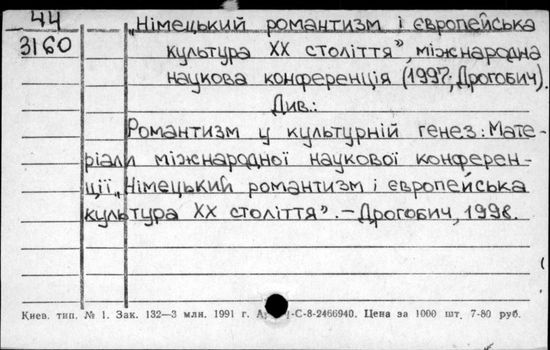 44
3160
„Німецький романтизм і європейська
культура XX століття", міжнародна
наукова конференція (1997; Дрогобич).
Див.:
Романтизм у культурній генез: Мате-
ріали міжнародної наукової конферен-
ції „Німецький романтизм і європейська
культура XX століття". – Дрогобич, 1998.
Киев. тип. № 1. Зак. 132—3 млн. 1991 г. -С-8-2466940. Цена за 1000 шт. 7-80 руб.